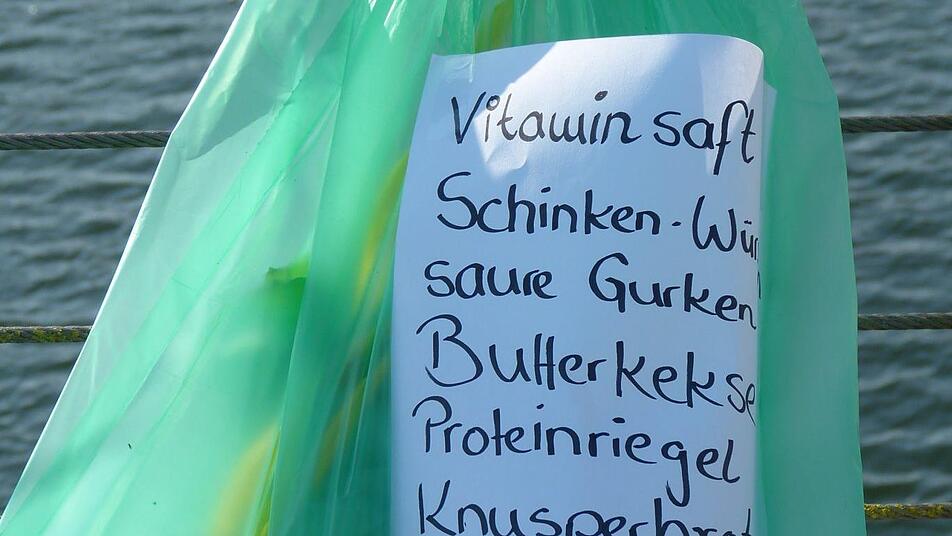 Vitamin saft
Schinken-Wür
saure Gurken
Butterkekse
Proteinriegel
Knusperbrot